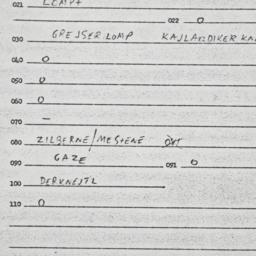 021 LOMP+
022 0
030 GREJSER LOMP KAJLANDIKER KA
040 0
050 0
060 0
070 –
080 ZILBERNE/MESHENE
090 GAZE 091 0
100
110 0